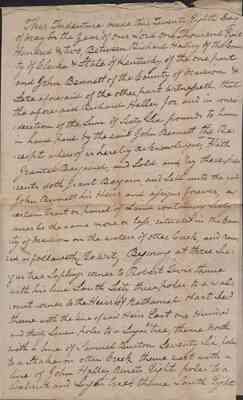 This Indenture made this Twenty Eighth Day
of May in the Year of our Lord one thousand Eight
Hundred & two, Between Richard Halley of the Coun
ty of Clarke & State of Kentucky of the one part
and John Bennett of the County of Madison &
State aforesaid of the other part Witnesseth, that
the aforesaid Richard Halley for and in consi
deration of the Sum of Sixty Six pounds to him
in hand paid by the said John Bennett the Re
ceipt whereof is hereby acknowledged, Hath
Granted Bargained, and Sold and by these pre
sents doth Grant Bargain and Sell unto the said
John Bennett his Heirs and Assigns forever, a
certain Tract or parcel of Land containing
acres be the same more or less, situated in the Coun
ty of Madison on the waters of otter Creek, and boun
ded as followeth, To Wit, Begining at three
trees corner to Robert
thence with his line South Sixty three poles to a wal
nut corner to the Heirs of Nathaniel Hart
thence with the line of said Hart East one Hundred
and thirty Seven poles to a tree, thence North
with a line of Samuel Seventy Six poles
to a Stake on otter Creek thence with a
line of John Halley Ninety Eight poles to a
Walnut and trees thence South Eight